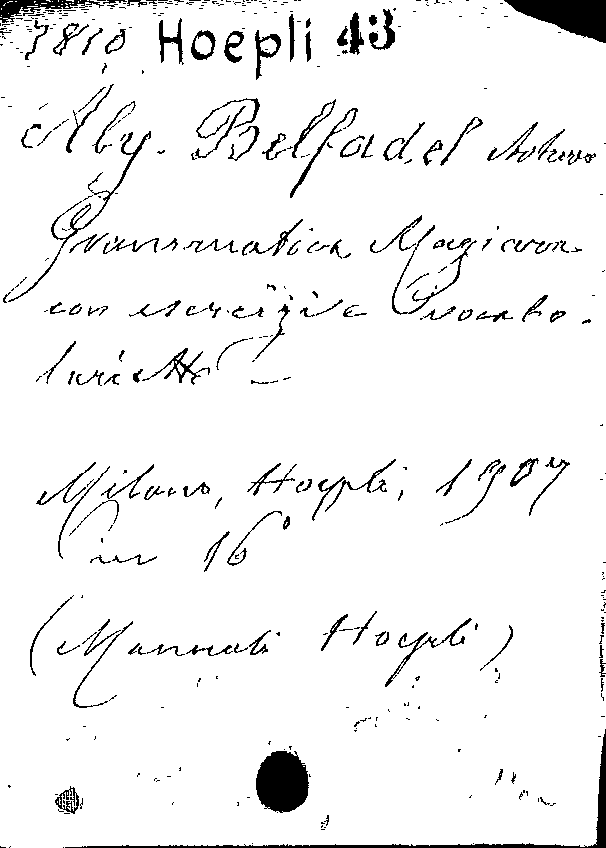 7810 Hoepli 43
Aly. Belfadel Arturo
Grammatica Magiara
con esercizi e vocabo-
larietto –
Milano, Hoepli, 1907
in 16°
(Manuali Hoepli)